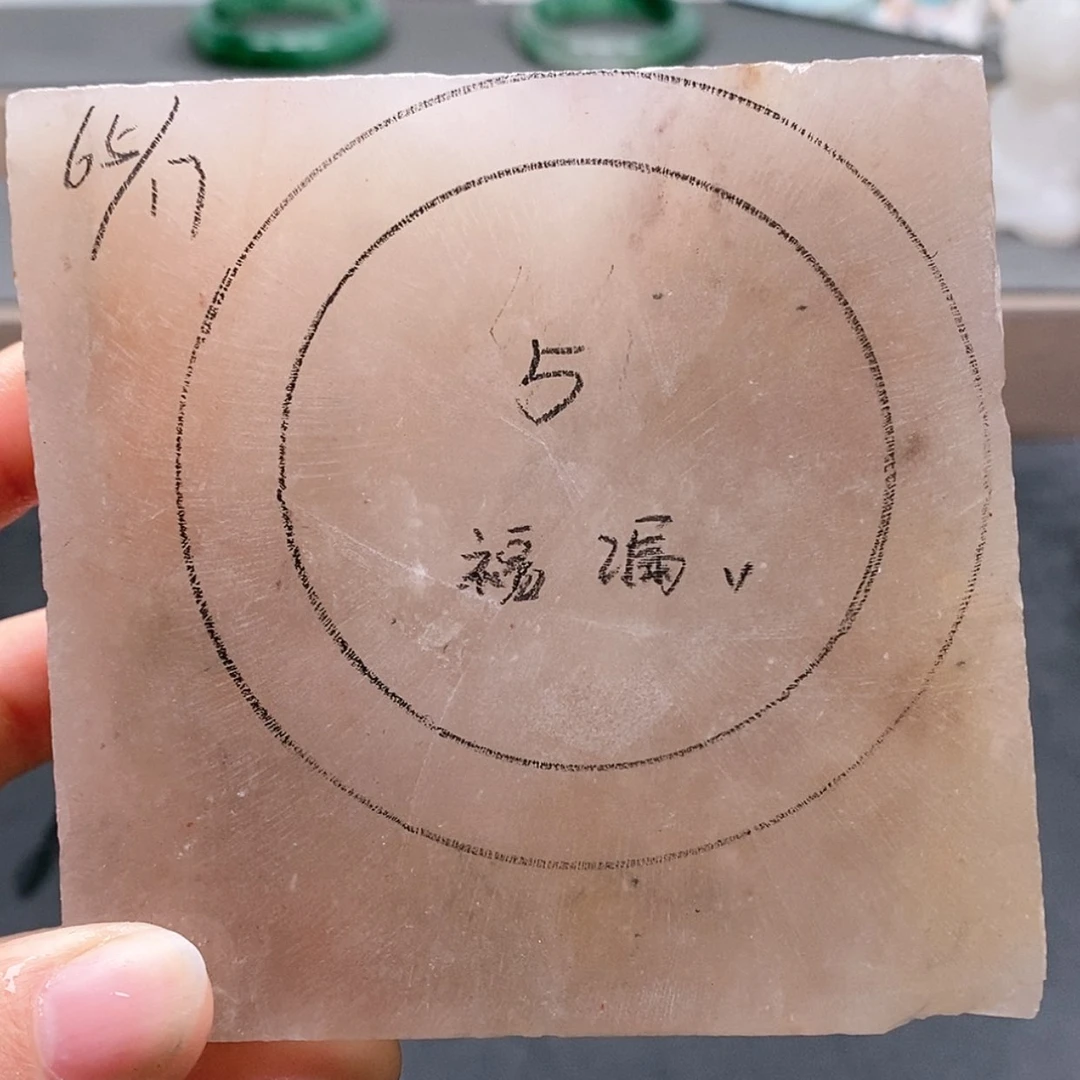 65/17
5
福漏 v